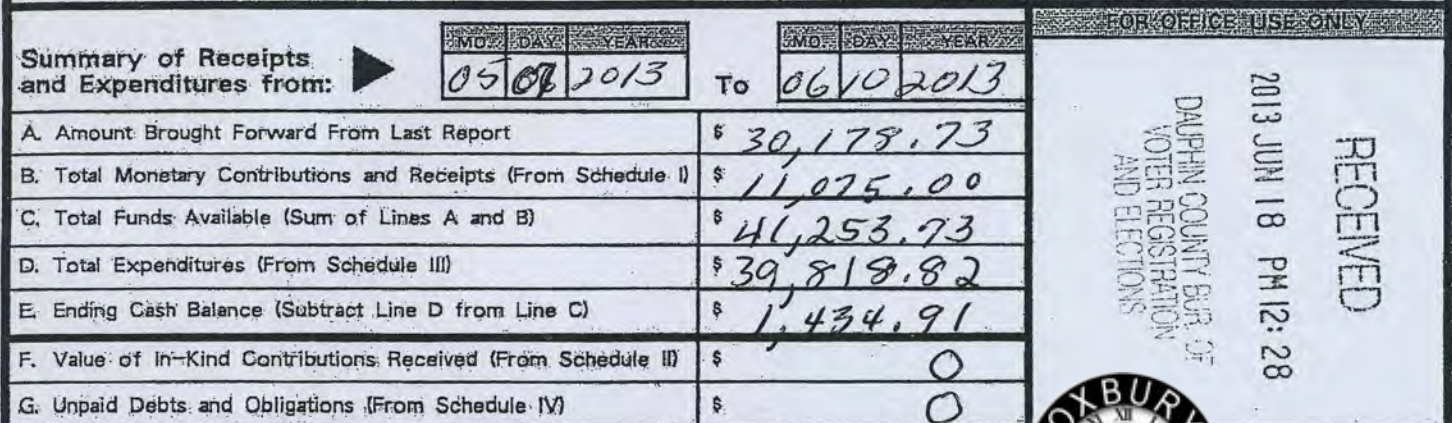 FOR OFFICE USE ONLY
Summary of Receipts
and Expenditures from:
MO. DAY YEAR
05 2013
To
MO. DAY YEAR
06 10 2013
A. Amount Brought Forward From Last Report $ 30,178.73
B. Total Monetary Contributions and Receipts (From Schedule I) $ 11,075.00
C. Total Funds Available (Sum of Lines A and B) $ 41,253.73
D. Total Expenditures (From Schedule III) $ 39,818.82
E. Ending Cash Balance (Subtract Line D from Line C) $ 1,434.91
F. Value of In-Kind Contributions Received (From Schedule II) $ 0
G. Unpaid Debts and Obligations (From Schedule IV) $ 0
RECEIVED
2013 JUN 18 PM 12:28
DAUPHIN COUNTY BUR. OF
VOTER REGISTRATION
AND ELECTIONS
XII